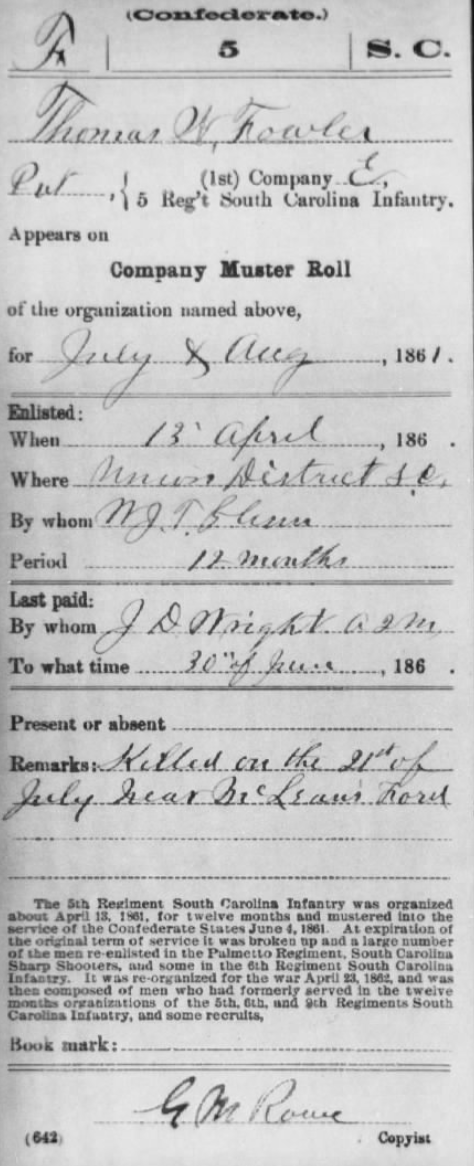 (Confederate.)
F | 5 | S. C.
Thomas W. Fowler
Pvt, { (1st) Company E,
5 Reg't South Carolina Infantry.
Appears on
Company Muster Roll
of the organization named above,
for July & Aug, 1861.
Enlisted:
When 13 April, 186 .
Where Union District S.C.
By whom W J T Glenn
Period 12 months
Last paid:
By whom J D Wright A Q M
To what time 30th of June, 186 .
Present or absent
Remarks: Killed on the 21st of
July near McLean's Ford
The 5th Regiment South Carolina Infantry was organized
about April 13, 1861, for twelve months and mustered into the
service of the Confederate States June 4, 1861. At expiration of
the original term of service it was broken up and a large number
of the men re-enlisted in the Palmetto Regiment, South Carolina
Sharp Shooters, and some in the 6th Regiment South Carolina
Infantry. It was re-organized for the war April 23, 1862, and was
then composed of men who had formerly served in the twelve
months organizations of the 5th, 6th, and 9th Regiments South
Carolina Infantry, and some recruits,
Book mark:
G M Rowe
(642) Copyist